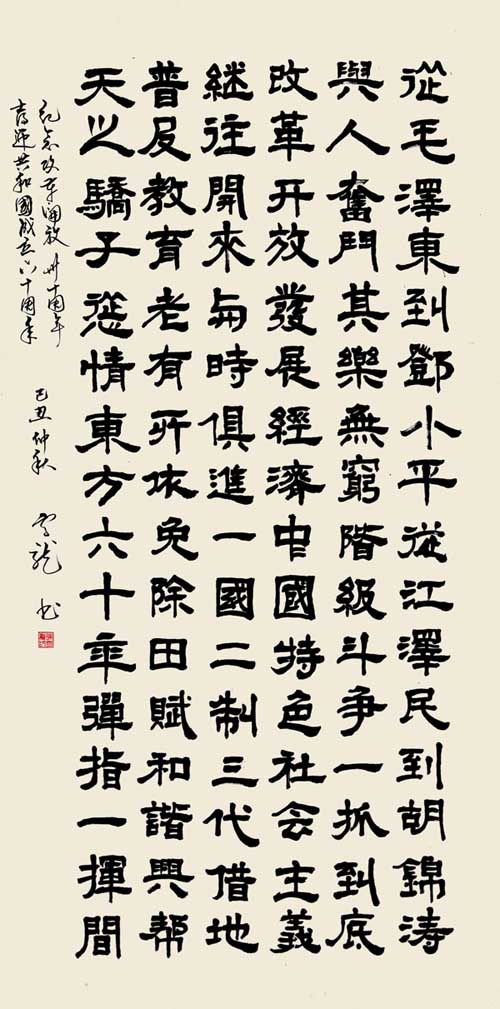 從毛澤東到鄧小平從江澤民到胡錦濤
與人奮鬥其樂無窮階級斗争一抓到底
改革开放發展經濟中國特色社会主義
继往開來与時俱進一國二制三代借地
普及教育老有所依免除田賦和諧興幫
天之驕子慫情東方六十年彈指一揮間
紀念改革開放卅十周年
喜迎共和國成立六十周年
己丑仲秋 龍 书